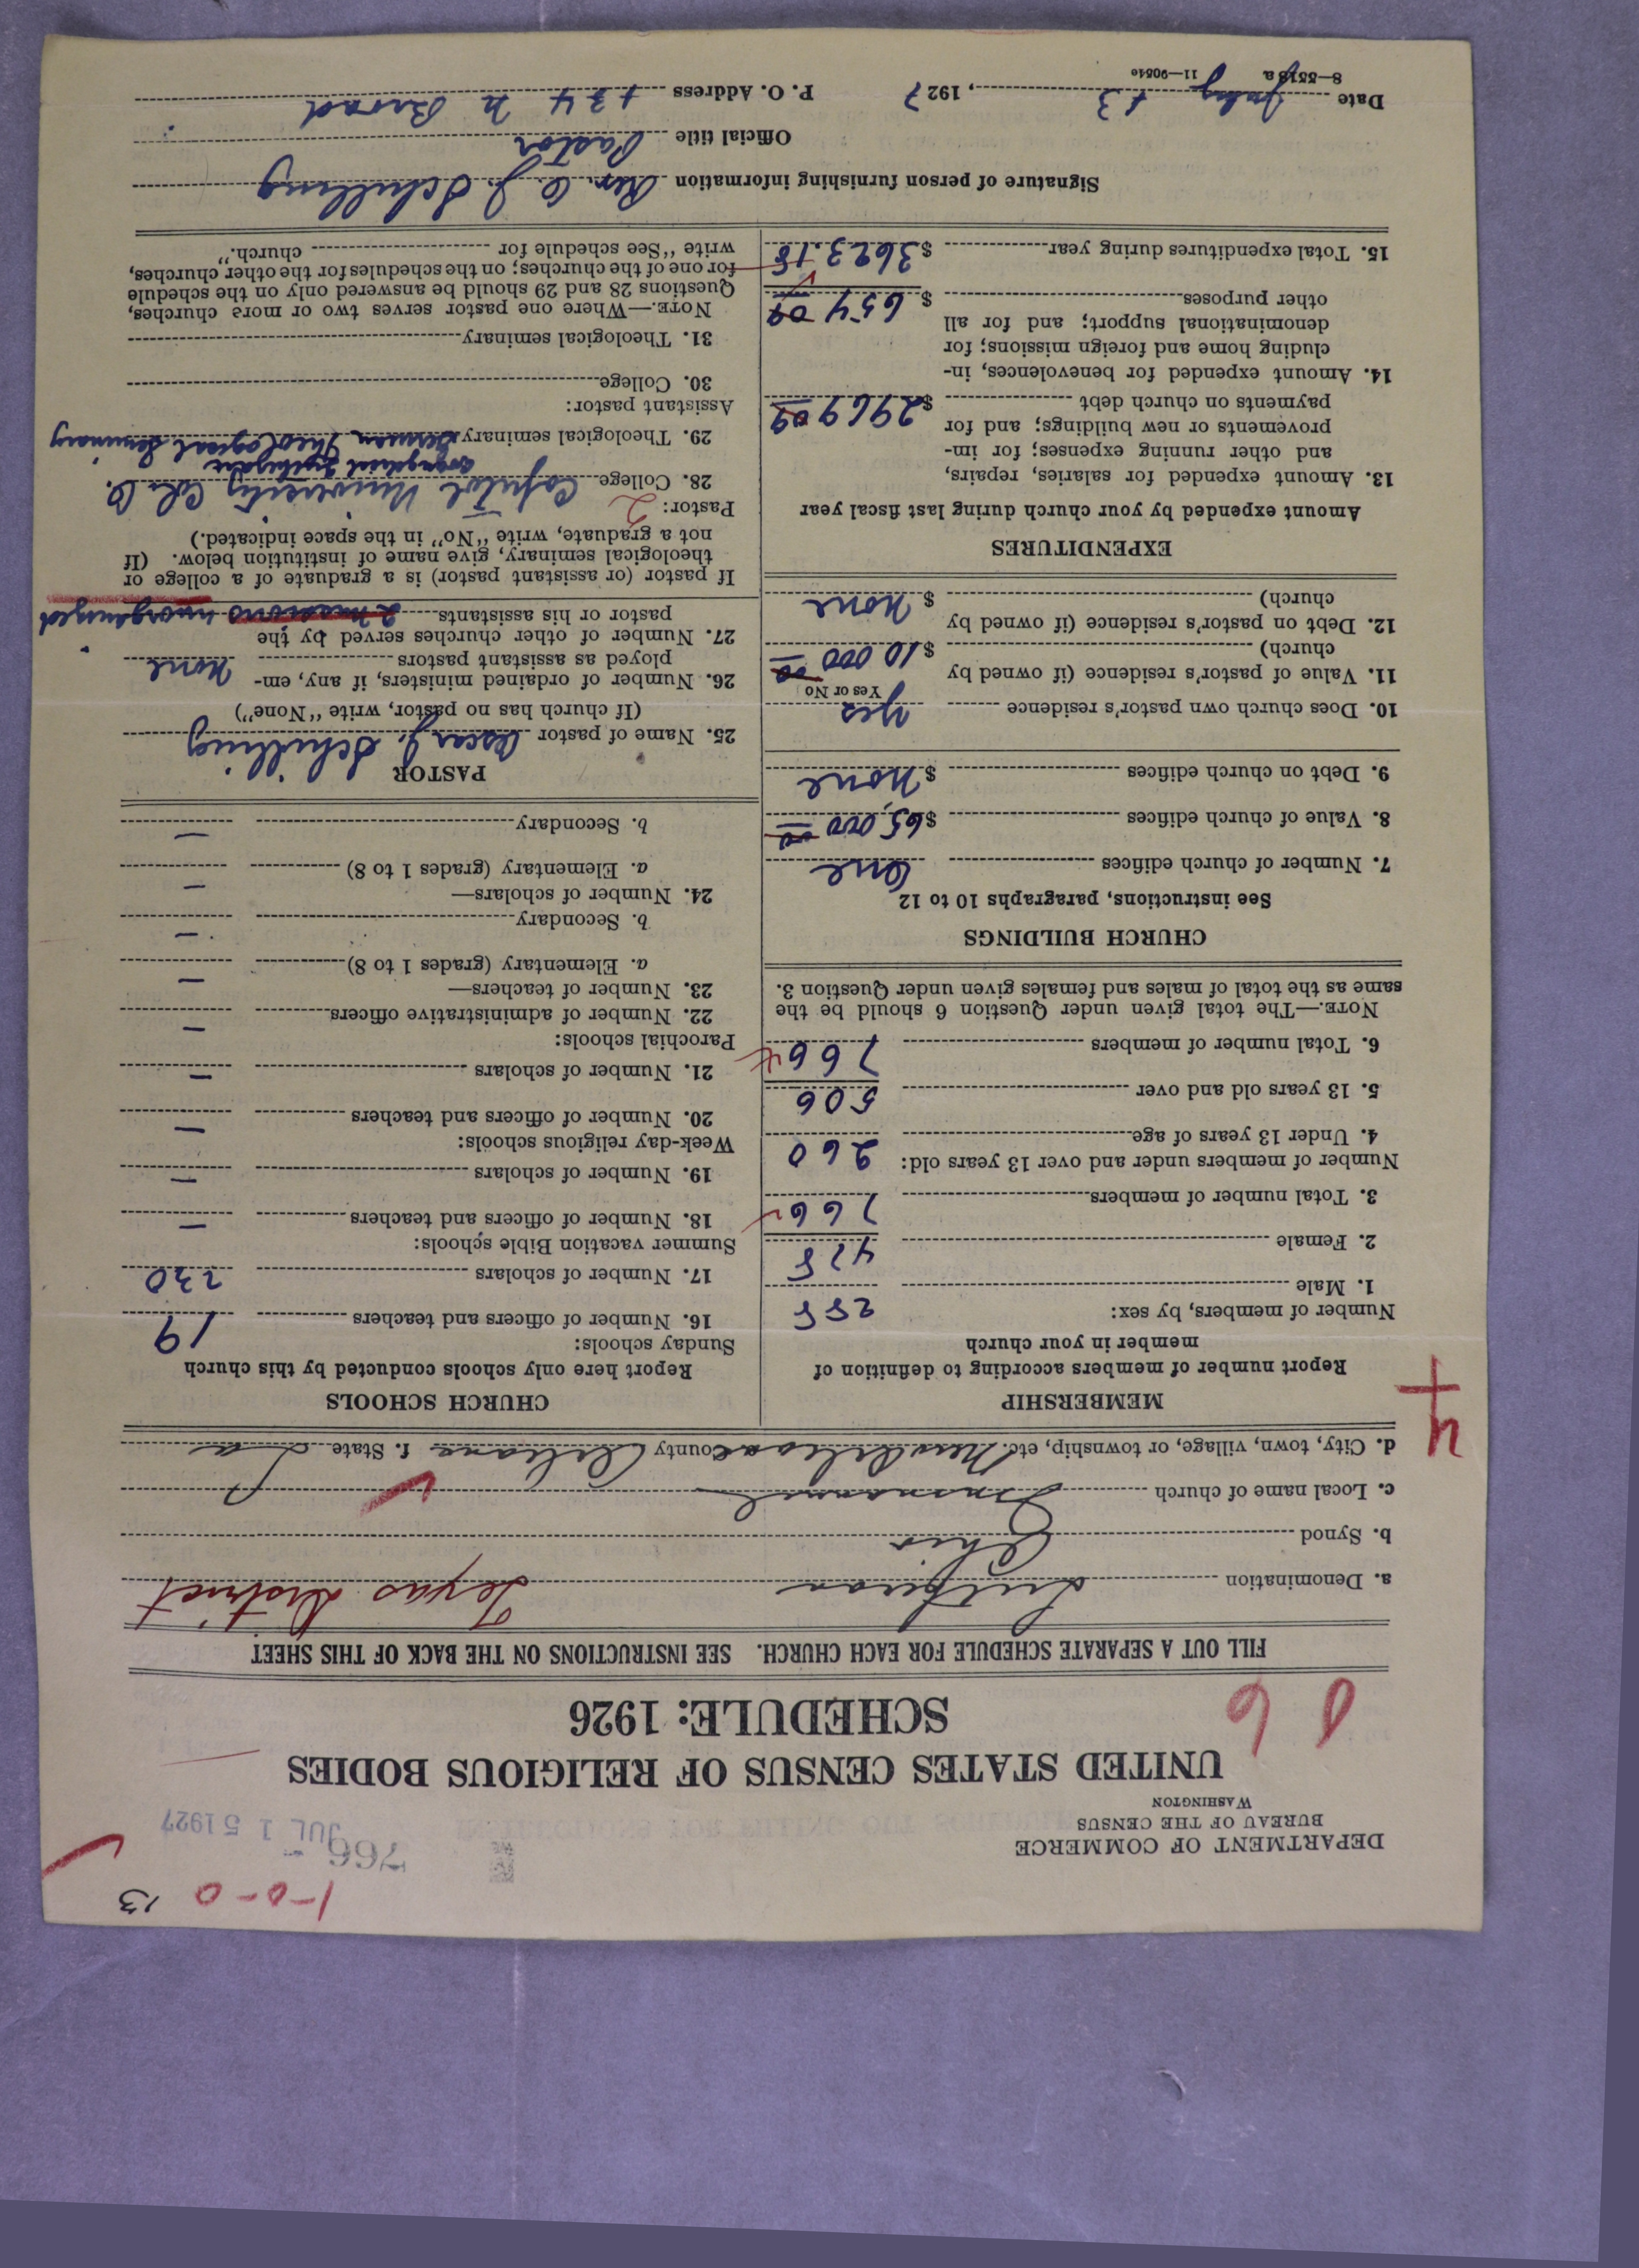 1-0-0 13
DEPARTMENT OF COMMERCE
BUREAU OF THE CENSUS
WASHINGTON
766
JUL 15 1927
UNITED STATES CENSUS OF RELIGIOUS BODIES
SCHEDULE: 1926
FILL OUT A SEPARATE SCHEDULE FOR EACH CHURCH. SEE INSTRUCTIONS ON THE BACK OF THIS SHEET
a. Denomination Lutheran Texas District
b. Synod Ohio
c. Local name of church Emmanuel
d. City, town, village, or township, etc. New Orleans County Orleans f. State La
4
MEMBERSHIP
Report number of members according to definition of
member in your church
Number of members, by sex:
1. Male 288
2. Female 478
3. Total number of members 766
Number of members under and over 13 years old:
4. Under 13 years of age 260
5. 13 years old and over 506
6. Total number of members 766
NOTE.—The total given under Question 6 should be the
same as the total of males and females given under Question 3.
CHURCH BUILDINGS
See instructions, paragraphs 10 to 12
7. Number of church edifices One
8. Value of church edifices $65,000 00
9. Debt on church edifices $ None
10. Does church own pastor's residence Yes
Yes or No
11. Value of pastor's residence (if owned by
church) $10 000 00
12. Debt on pastor's residence (if owned by
church) $ None
EXPENDITURES
Amount expended by your church during last fiscal year
13. Amount expended for salaries, repairs,
and other running expenses; for im-
provements or new buildings; and for
payments on church debt $2969 09
14. Amount expended for benevolences, in-
cluding home and foreign missions; for
denominational support; and for all
other purposes $654 09
15. Total expenditures during year $3623.18
CHURCH SCHOOLS
Report here only schools conducted by this church
Sunday schools:
16. Number of officers and teachers 19
17. Number of scholars 230
Summer vacation Bible schools:
18. Number of officers and teachers —
19. Number of scholars —
Week-day religious schools:
20. Number of officers and teachers —
21. Number of scholars —
Parochial schools:
22. Number of administrative officers —
23. Number of teachers—
a. Elementary (grades 1 to 8) —
b. Secondary —
24. Number of scholars—
a. Elementary (grades 1 to 8) —
b. Secondary —
PASTOR
25. Name of pastor Oscar J. Schilling
(If church has no pastor, write "None")
26. Number of ordained ministers, if any, em-
ployed as assistant pastors None
27. Number of other churches served by the
pastor or his assistants 2 missions unorganized
If pastor (or assistant pastor) is a graduate of a college or
theological seminary, give name of institution below. (If
not a graduate, write "No" in the space indicated.)
Pastor: 2
28. College Capitol University Col. O.
Evangelical
29. Theological seminary German Theological Seminary
Assistant pastor:
30. College
31. Theological seminary
NOTE.—Where one pastor serves two or more churches,
Questions 28 and 29 should be answered only on the schedule
for one of the churches; on the schedules for the other churches,
write "See schedule for church."
Signature of person furnishing information Rev. O. J. Schilling
Official title Pastor
Date July 13, 1927 P. O. Address N Broad
8—5518a 11—9054e